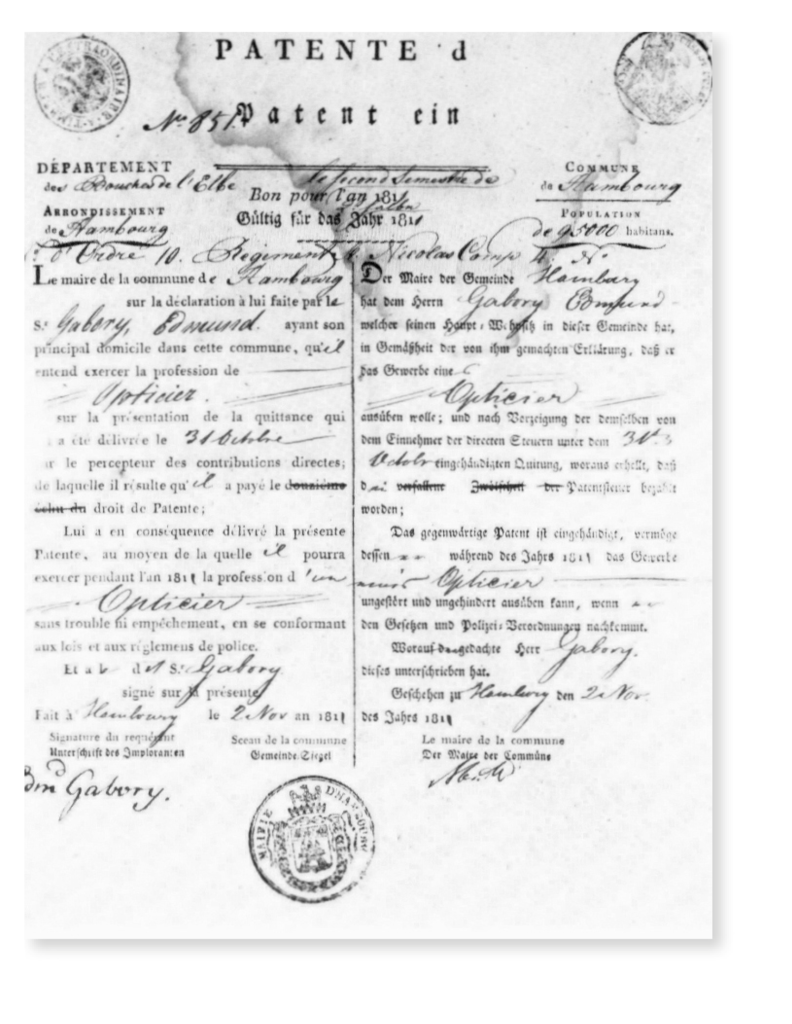 PATENTE d
Patent ein
No 851.
DÉPARTEMENT
des Bouches de l'Elbe
ARRONDISSEMENT
de Hambourg
le second Semestre de
Bon pour l'an 1811
halbe
Gültig für das Jahr 1811
COMMUNE
de Hambourg
POPULATION
de 95000 habitans.
d'Ordre 10. Regiment Nicolas Comp 4. No
Le maire de la commune de Hambourg
sur la déclaration à lui faite par le
Sr Gabory, Edmund. ayant son
principal domicile dans cette commune, qu'il
entend exercer la profession de
Opticier.
sur la présentation de la quittance qui
a été délivrée le 31 Octobre
le percepteur des contributions directes;
de laquelle il résulte qu'il a payé le douzième
échu du droit de Patente;
Lui a en conséquence délivré la présente
Patente, au moyen de la quelle il pourra
exercer pendant l'an 1811 la profession d'un
Opticier
sans trouble ni empêchement, en se conformant
aux lois et aux réglemens de police.
Et a le dit Sr Gabory
signé sur la présente
Fait à Hambourg le 2 Nov an 1811
Signature du requérant
Unterschrift des Imploranten
Sceau de la commune
Gemeinde-Siegel
Edmd Gabory.
Der Maire der Gemeinde Hamburg
hat dem Herrn Gabory Edmund
welcher seinen Haupt-Wohnsitz in dieser Gemeinde hat,
in Gemäßheit der von ihm gemachten Erklärung, daß er
das Gewerbe eine
Opticier
ausüben wolle; und nach Vorzeigung der demselben von
dem Einnehmer der directen Steuern unter dem 31t
Octobr eingehändigten Quitung, woraus erhellt, daß
verfallene Zwölftheil der Patentsteuer bezahlt
worden;
Das gegenwärtige Patent ist eingehändigt, vermöge
dessen er während des Jahrs 1811 das Gewerbe
eines Opticier
ungestört und ungehindert ausüben kann, wenn er
den Gesetzen und Polizei-Verordnungen nachkommt.
Worauf gedachte Herr Gabory.
dieses unterschrieben hat.
Geschehen zu Hamburg den 2 Nov.
des Jahrs 1811
Le maire de la commune
Der Maire der Commüne
MAIRIE D'HAMBOURG